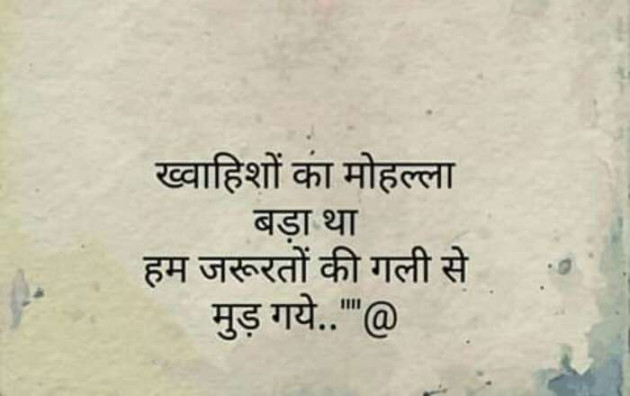 ख्वाहिशों का मोहल्ला
बड़ा था
हम जरूरतों की गली से
मुड़ गये..""@